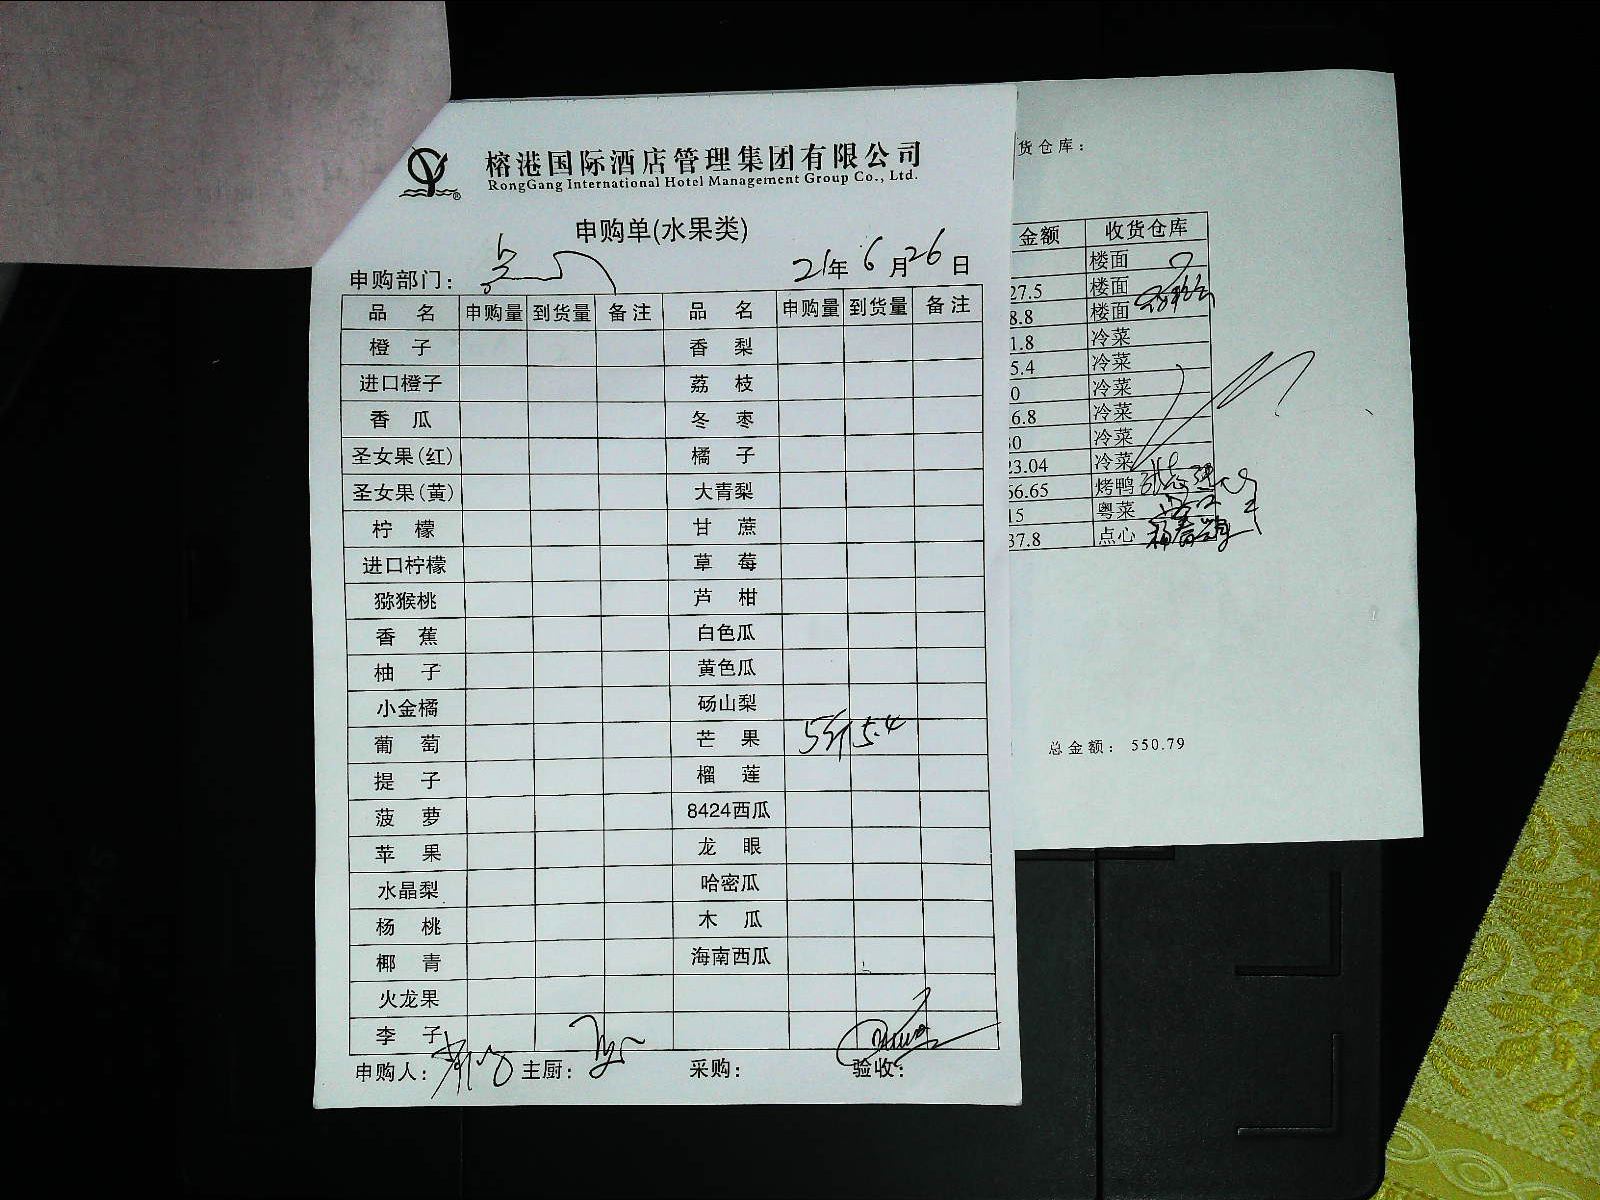 榕港国际酒店管理集团有限公司
RongGang International Hotel Management Group Co., Ltd.
申购单(水果类)
申购部门： 21年 6月26日
品 名 申购量 到货量 备注 品 名 申购量 到货量 备注
橙 子 香 梨
进口橙子 荔 枝
香 瓜 冬 枣
圣女果(红) 橘 子
圣女果(黄) 大青梨
柠 檬 甘 蔗
进口柠檬 草 莓
猕猴桃 芦 柑
香 蕉 白色瓜
柚 子 黄色瓜
小金橘 砀山梨
葡 萄 芒 果 5斤 5.4
提 子 榴 莲
菠 萝 8424西瓜
苹 果 龙 眼
水晶梨 哈密瓜
杨 桃 木 瓜
椰 青 海南西瓜
火龙果
李 子
申购人： 主厨： 采购： 验收：
货仓库：
金额 收货仓库
楼面
27.5 楼面
8.8 楼面
1.8 冷菜
5.4 冷菜
0 冷菜
6.8 冷菜
30 冷菜
23.04 冷菜
66.65 烤鸭
15 粤菜
37.8 点心
总金额： 550.79